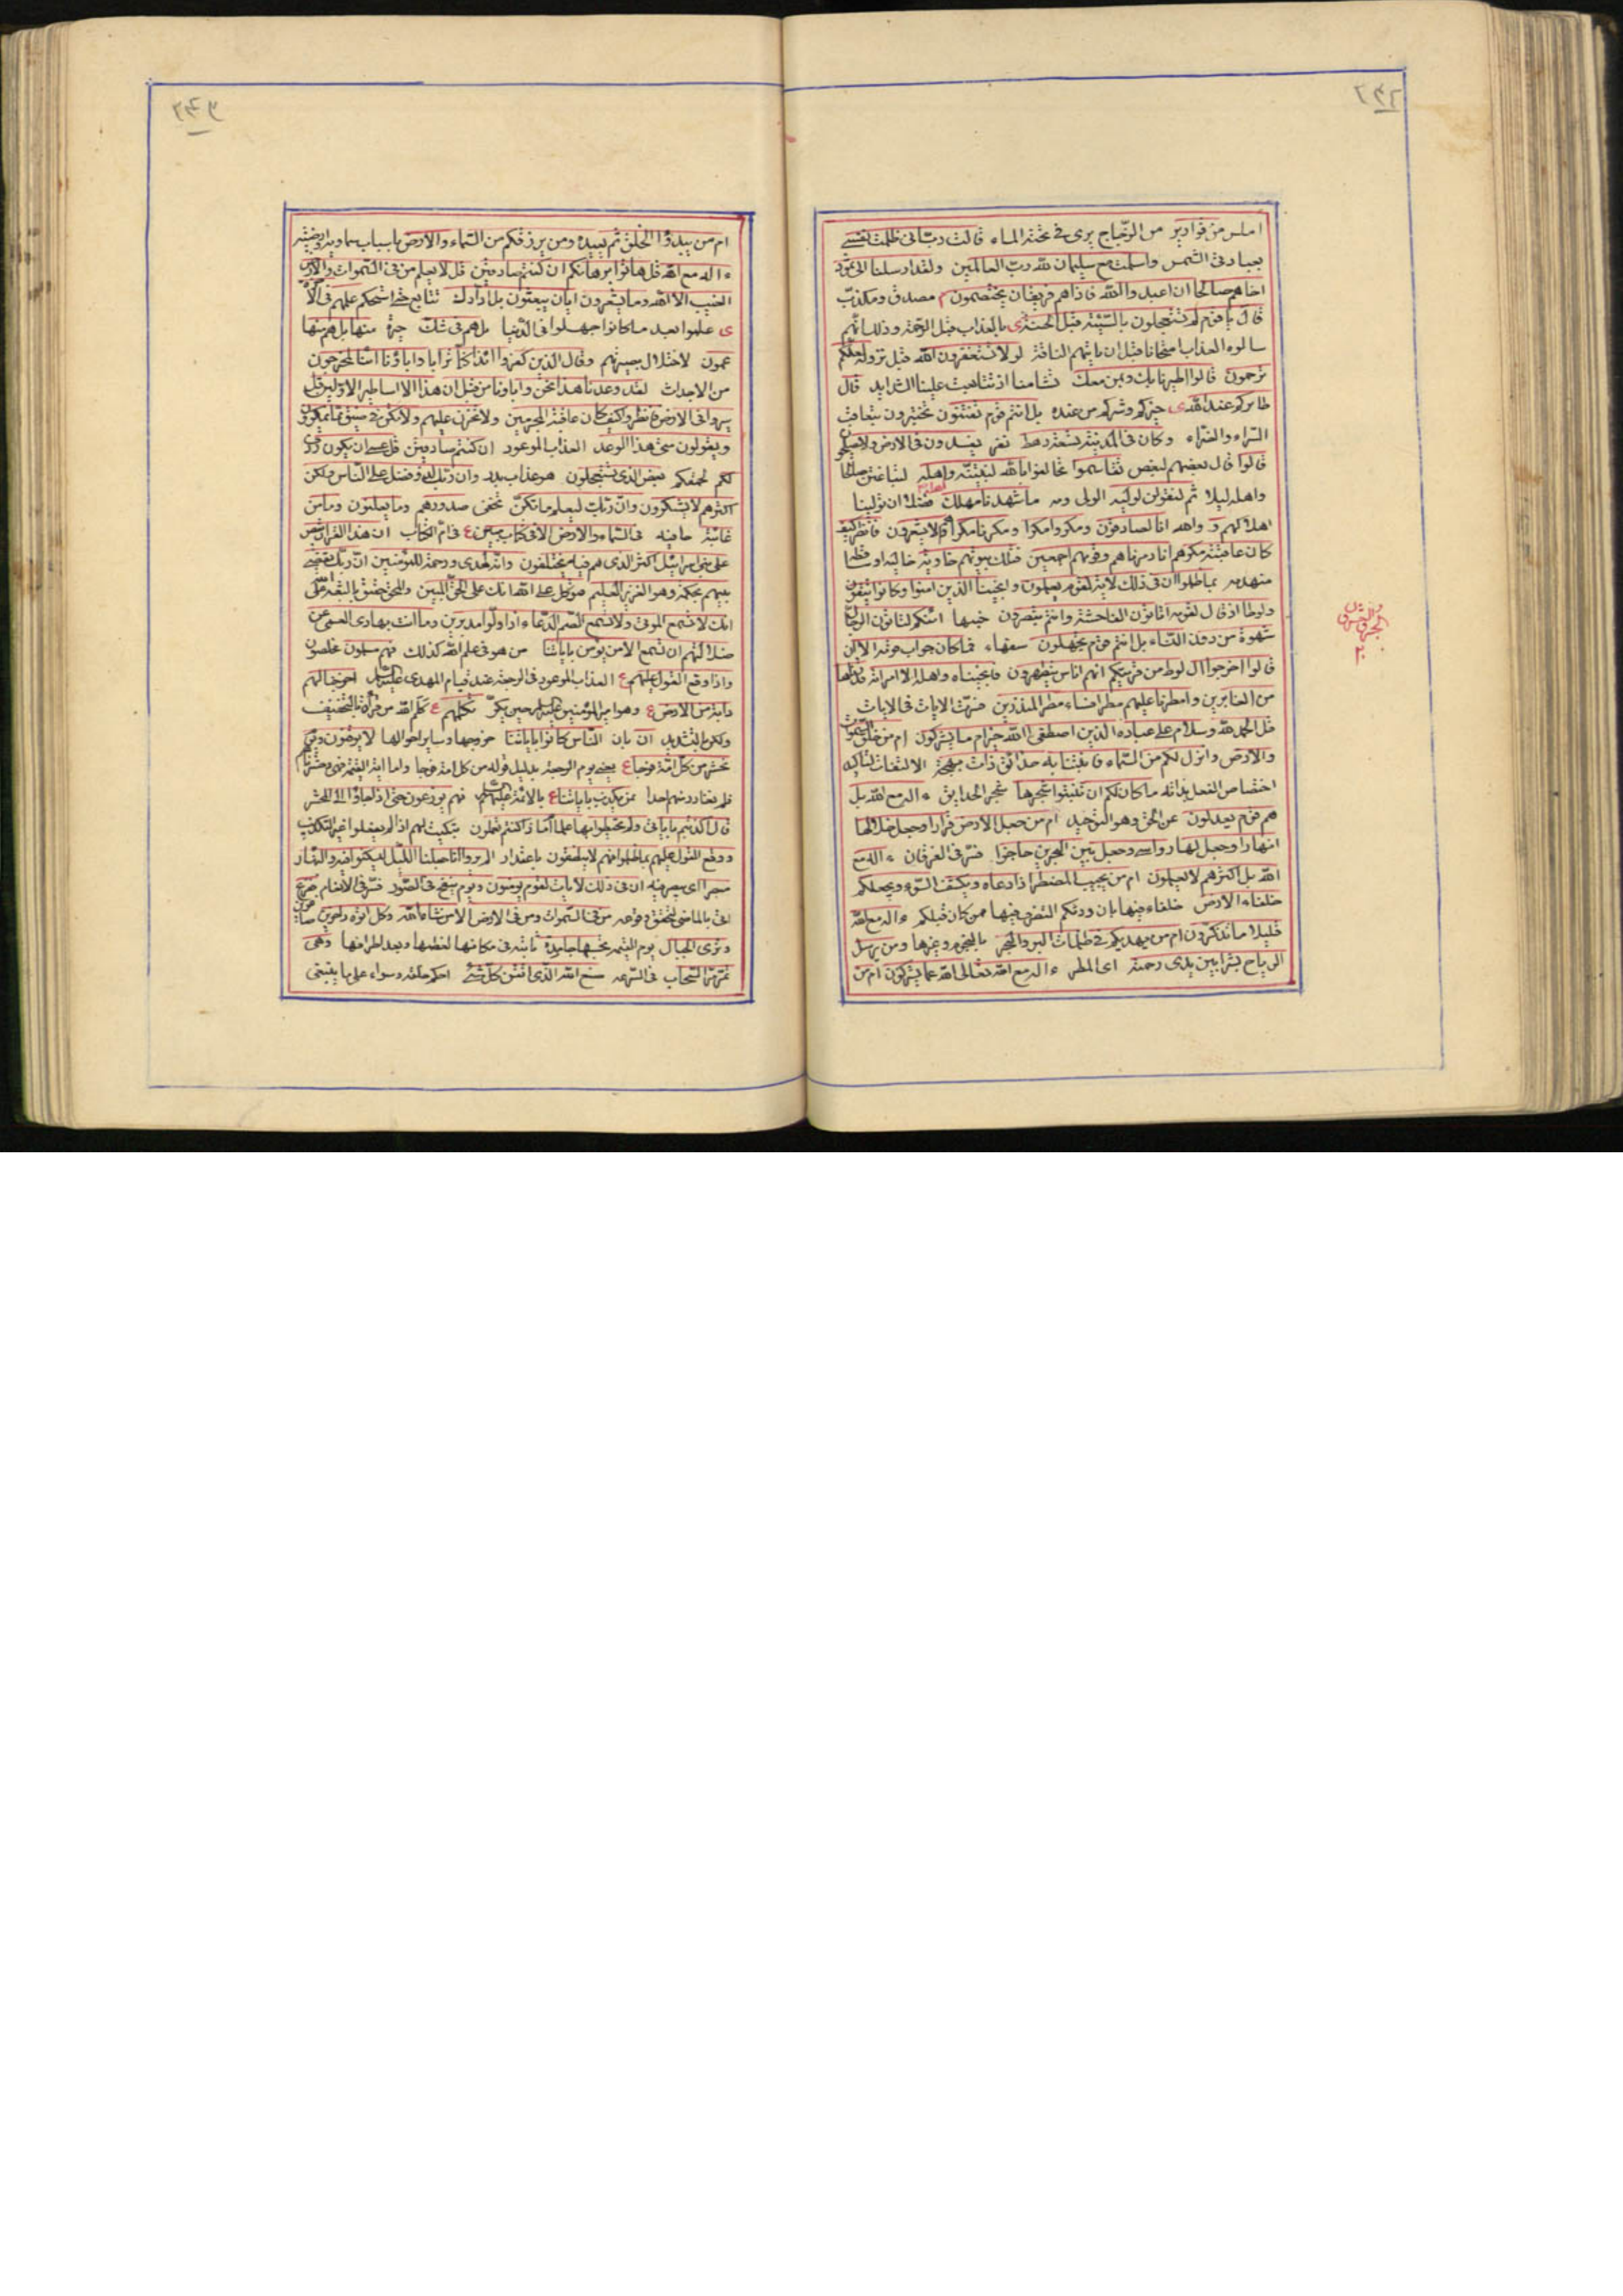 املس من قوارير من الزجاج يرى في تحته الماء قالت رب اني ظلمت نفسي
بعبادتي الشمس واسلمت مع سليمان لله رب العالمين ولقد ارسلنا الى ثمود
اخاهم صالحا ان اعبدوا الله فاذا هم فريقان يختصمون م مصدق ومكذب
قال يا قوم لم تستعجلون بالسيئة قبل الحسنة ى بالعذاب قبل الرحمة وذلك انهم
سالوه العذاب امتحانا قبل ان ياتيهم الناقة لولا تستغفرون الله قبل نزوله لعلكم
ترحمون قالوا اطيرنا بك وبمن معك تشامنا اذ تتابعت علينا الشدايد قال
طائركم عند الله ى خيركم وشركم من عنده بل انتم قوم تفتنون تختبرون بتعاقب
السراء والضراء وكان في المدينة تسعة رهط نفر يفسدون في الارض ولا يصلحون
قالوا قال بعضهم لبعض تقاسموا تحالفوا بالله لنبيتنه واهله لنباغتن صالحا
واهله ليلا ثم لنقولن لوليه الولي دمه ما شهدنا مهلك اهله فضلا ان تولينا
اهلاكهم و والله انا لصادقون ومكروا مكرا ومكرنا مكرا وهم لا يشعرون فانظر كيف
كان عاقبة مكرهم انا دمرناهم وقومهم اجمعين فتلك بيوتهم خاوية خالية او ساقطة
منهدمه بما ظلموا ان في ذلك لاية لقوم يعلمون وانجينا الذين امنوا وكانوا يتقون
ولوطا اذ قال لقومه اتاتون الفاحشة وانتم تبصرون خبثها ائنكم لتاتون الرجال
شهوة من دون النساء بل انتم قوم تجهلون سفهاء فما كان جواب قومه الا ان
قالوا اخرجوا ال لوط من قريتكم انهم اناس يتطهرون فانجيناه واهله الا امراته قدرناها
من الغابرين وامطرنا عليهم مطرا فساء مطر المنذرين فسرت الايات في الايات
قل الحمد لله وسلام على عباده الذين اصطفى االله خير ام ما يشركون ام من خلق السموات
والارض وانزل لكم من السماء فانبتنا به حدائق ذات بهجة الالتفات لتاكيد
اختصاص الفعل بذاته ما كان لكم ان تنبتوا شجرها شجر الحدايق ءاله مع الله بل
هم قوم يعدلون عن الحق وهو التوحيد ام من جعل الارض قرارا وجعل خلالها
انهارا وجعل لها رواسي وجعل بين البحرين حاجزا فسر في الفرقان ءاله مع
الله بل اكثرهم لا يعلمون ام من يجيب المضطر اذا دعاه ويكشف السوء ويجعلكم
خلفاء الارض خلفاء فيها بان ورثكم التصرف فيها ممن كان قبلكم ءاله مع الله
قليلا ما تذكرون ام من يهديكم في ظلمات البر والبحر بالنجوم وغيرها ومن يرسل
الرياح بشرا بين يدي رحمته اي المطر ءاله مع الله تعالى الله عما يشركون ام من
ام من يبدؤا الخلق ثم يعيده ومن يرزقكم من السماء والارض باسباب سماوية وارضية
ءاله مع الله قل هاتوا برهانكم ان كنتم صادقين قل لا يعلم من في السموات والارض
الغيب الا الله وما يشعرون ايان يبعثون بل ادارك تتابع حتى استحكم علمهم في الاخرة
ى علموا بعد ما كانوا جهلوا في الدنيا بل هم في شك حيرة منها بل هم منها
عمون لاختلال بصيرتهم وقال الذين كفروا ائذا كنا ترابا واباؤنا ائنا لمخرجون
من الاجداث لقد وعدنا هذا نحن واباؤنا من قبل ان هذا الا اساطير الاولين قل
سيروا في الارض فانظروا كيف كان عاقبة المجرمين ولا تحزن عليهم ولا تكن في ضيق مما يمكرون
ويقولون متى هذا الوعد العذاب الموعود ان كنتم صادقين قل عسى ان يكون ردف
لكم لحقكم بعض الذي تستعجلون هو عذاب بدر وان ربك لذو فضل على الناس ولكن
اكثرهم لا يشكرون وان ربك ليعلم ما تكن تخفي صدورهم وما يعلنون وما من
غائبة خافيه في السماء والارض الا في كتاب مبين ع في ام الكتاب ان هذا القران يقص
على بني اسرائيل اكثر الذي هم فيه يختلفون وانه لهدى ورحمة للمؤمنين ان ربك يقضي
بينهم بحكمه وهو العزيز العليم فتوكل على الله انك على الحق المبين والمحق حقيق بالثقة بالله
انك لا تسمع الموتى ولا تسمع الصم الدعاء اذا ولوا مدبرين وما انت بهادي العمي عن
ضلالتهم ان تسمع الا من يؤمن باياتنا من هو في علم الله كذلك فهم مسلمون مخلصون
واذا وقع القول عليهم ع العذاب الموعود في الرجعة عند قيام المهدي عليه السلام اخرجنا لهم
دابة من الارض ع وهو امير المؤمنين عليه السلام حين يكر تكلمهم ع كلم الله من قراه بالتخفيف
ولكن بالتشديد ان بان الناس كانوا باياتنا خروجها وساير احوالها لا يوقنون ويوم
نحشر من كل امة فوجا ع يعني يوم الرجعة بدليل قوله من كل امة فوجا واما اية القيمة فهي وحشرناهم
فلم نغادر منهم احدا ممن يكذب باياتنا ع بالائمة عليهم السلام فهم يوزعون حتى اذا جاؤا الى المحشر
قال اكذبتم باياتي ولم تحيطوا بها علما اما ذا كنتم تعملون تبكيت لهم اذ لم يفعلوا غير التكذيب
ووقع القول عليهم بما ظلموا فهم لا ينطقون باعتذار الم يروا انا جعلنا الليل ليسكنوا فيه والنهار
مبصرا اي يبصر فيه ان في ذلك لايات لقوم يؤمنون ويوم ينفخ في الصور فسر في الانعام ففزع
اتى بالماضي لتحقق وقوعه من في السموات ومن في الارض الا من شاء الله وكل اتوه داخرين صاغرين
وترى الجبال يوم القيمه تحسبها جامدة ثابته في مكانها لعظمها وبعد اطرافها وهي
تمر مر السحاب في السرعه صنع الله الذي اتقن كل شئ احكم خلقه وسواه على ما ينبغي